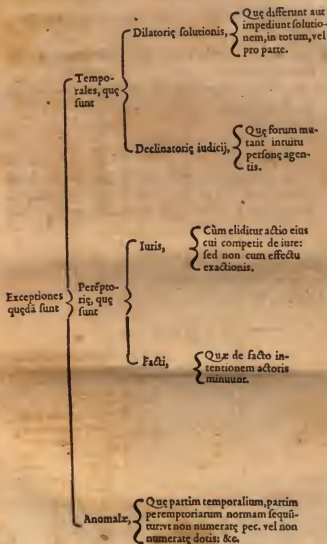 Exceptiones
quędā sunt
Tempo-
rales, quę
sunt
Dilatorię solutionis,
Quę differunt aut
impediunt solutio-
nem, in totum, vel
pro parte.
Declinatorię iudicij,
Quę forum mu-
tant intuitu
personę agen-
tis.
Perēpto-
rię, quę
sunt
Iuris,
Cùm eliditur actio eius
cui competit de iure:
sed non cum effectu
exactionis.
Facti,
Quæ de facto in-
tentionem actoris
minuunt.
Anomalæ,
Quę partim temporalium, partim
peremptoriarum normam sequū-
tur: vt non numeratę pec. vel non
numeratę dotis: &c.